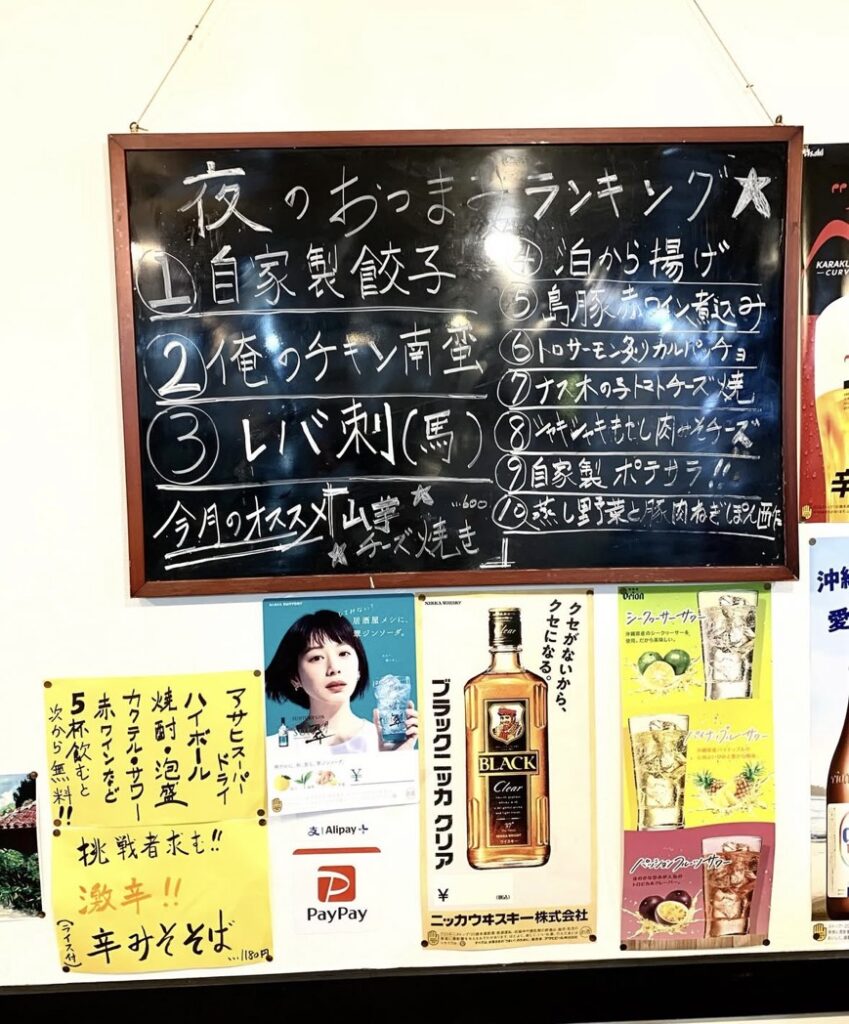 夜のおつまみランキング☆
① 自家製餃子
② 俺のチキン南蛮
③ レバ刺(馬)
今月のオススメ
山芋 ...600
チーズ焼き
④ 泊から揚げ
⑤ 島豚赤ワイン煮込み
⑥ トロサーモン炙りカルパッチョ
⑦ ナス木の子トマトチーズ焼
⑧ シャキシャキもやし肉みそチーズ
⑨ 自家製ポテサラ!!
⑩ 蒸し野菜と豚肉ねぎぽん酢
アサヒスーパー
ドライ
ハイボール
焼酎・泡盛
カクテル・サワー
赤ワインなど
5杯飲むと
次から無料!!
挑戦者求む!!
激辛!!
辛みそそば
(ライス付)
...1180円
居酒屋メシに、
翠ジンソーダ。
翠
¥
Alipay
PayPay
NIKKA WHISKY
クセがないから、
クセになる。
ブラックニッカ クリア
Clear
BLACK
Clear
37°
ウイスキー
¥
(税込)
ニッカウヰスキー株式会社
Orion
シークヮーサーサワー
沖縄県産のシークヮーサーを
使用。だから美味しい。
パイナップルサワー
パッションフルーツサワー
Asahi
KARAKU
CURV
辛
沖縄
愛